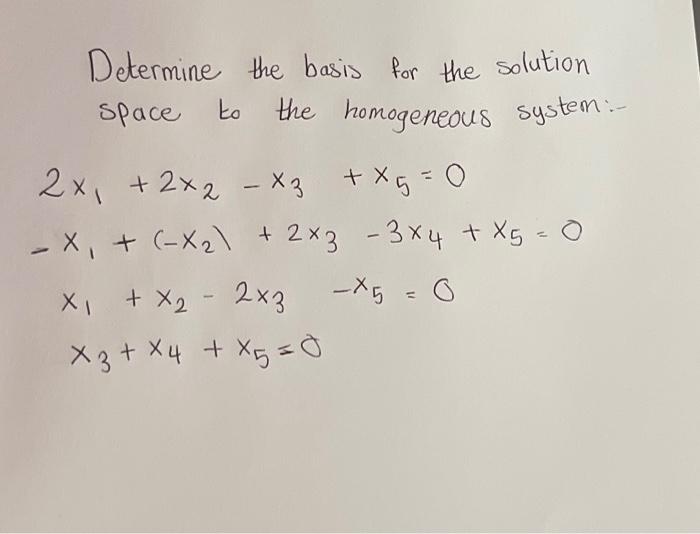 Determine the basis for the solution
space to the homogeneous system:-
2x₁ + 2x₂ - x₃ + x₅ = 0
- x₁ + (-x₂) + 2x₃ - 3x₄ + x₅ = 0
x₁ + x₂ - 2x₃ -x₅ = 0
x₃ + x₄ + x₅ = 0